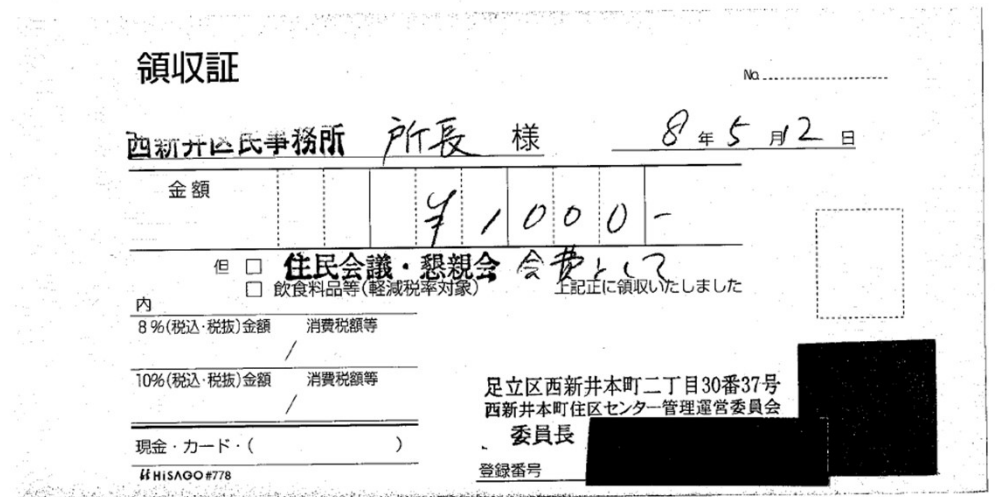 領収証
No.
西新井区民事務所 所長 様
8年5月12日
金額
¥1000-
但 □ 住民会議・懇親会 会費として
□ 飲食料品等(軽減税率対象) 上記正に領収いたしました
内
8%(税込・税抜)金額 消費税額等
/
10%(税込・税抜)金額 消費税額等
/
足立区西新井本町二丁目30番37号
西新井本町住区センター管理運営委員会
委員長
現金・カード・( )
登録番号
HiSAGO #778